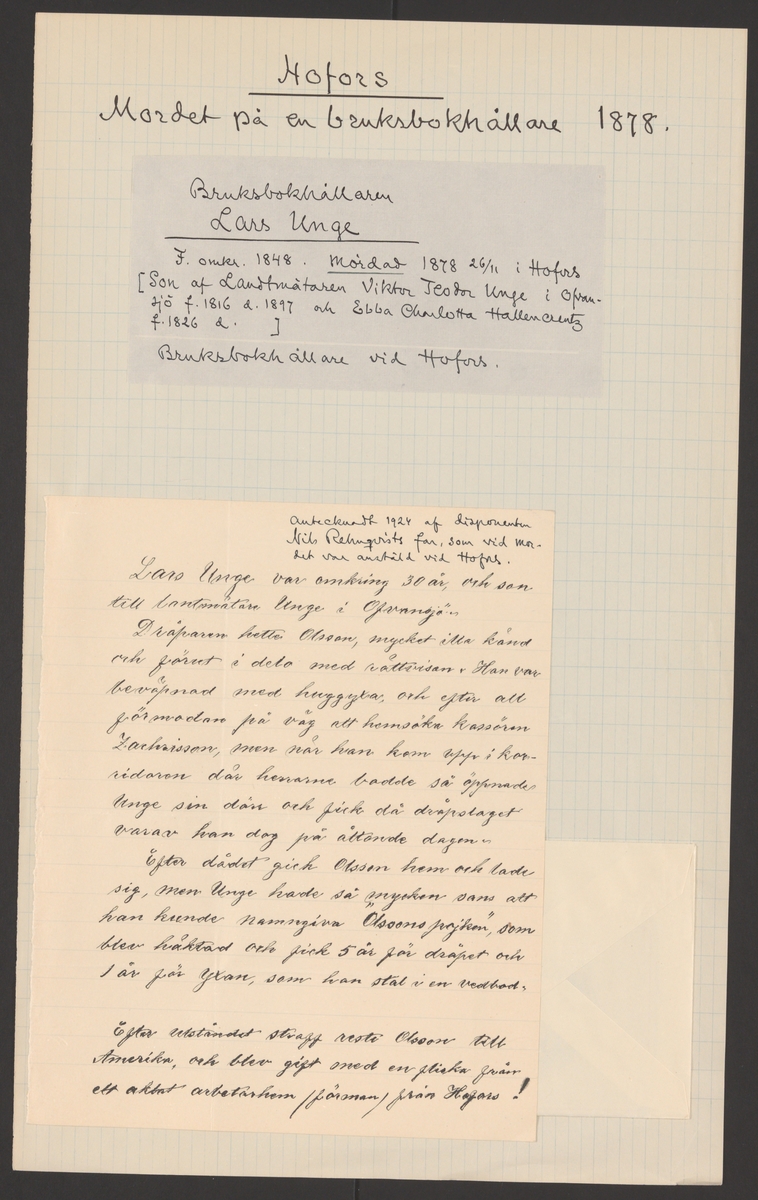 Hofors
Mordet på en bruksbokhållare 1878.
Bruksbokhållaren
Lars Unge
F. omkr. 1848. Mördad 1878 26/11 i Hofors
[Son af Landtmätaren Viktor Teodor Unge i Ofvan-
sjö f. 1816 d. 1897 och Ebba Charlotta Hallencreutz
f. 1826 d. ]
Bruksbokhållare vid Hofors.
Antecknadt 1924 af disponenten
Nils Rehnqvists far, som vid mor-
det var anstäld vid Hofors.
Lars Unge var omkring 30 år, och son
till lantmätare Unge i Ofvansjö.
Dråparen hette Olsson, mycket illa känd
och förut i delo med rättvisan. Han var
beväpnad med huggyxa, och efter allt
förmodan på väg att hemsöka kassören
Zachrisson, men når han kom upp i kor-
ridoren där herrarne bodde så öppnade
Unge sin dörr och fick då dråpslaget
varav han dog på åttonde dagen.
Efter dådet gick Olsson hem och lade
sig, men Unge hade så mycken sans att
han kunde namngiva "Olssons pojken", som
blev häktad och fick 5 år för dråpet och
1 år för yxan, som han stal i en vedbod.
Efter utståndet straff reste Olsson till
Amerika, och blev gift med en flicka från
ett aktat arbetarhem (förman) från Hofors!